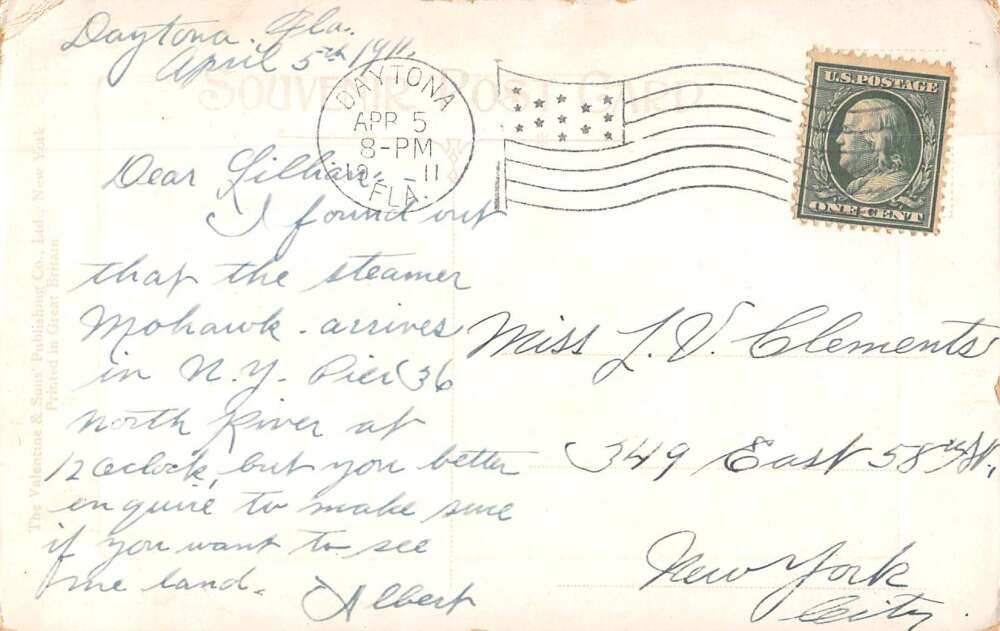 Daytona. Fla.
April 5th 1911.
SOUVENIR POST CARD
DAYTONA
APR 5
8-PM
19 -11
FLA.
U.S. POSTAGE
ONE CENT
Dear Lillian,
I found out
that the steamer
Mohawk arrives
in N.Y. Pier 36
North River at
12 oclock, but you better
enquire to make sure
if you want to see
me land.
Albert
Miss L. V. Clements
349 East 58th St.,
New York
City.
The Valentine & Sons' Publishing Co., Ltd., New York
Printed in Great Britain